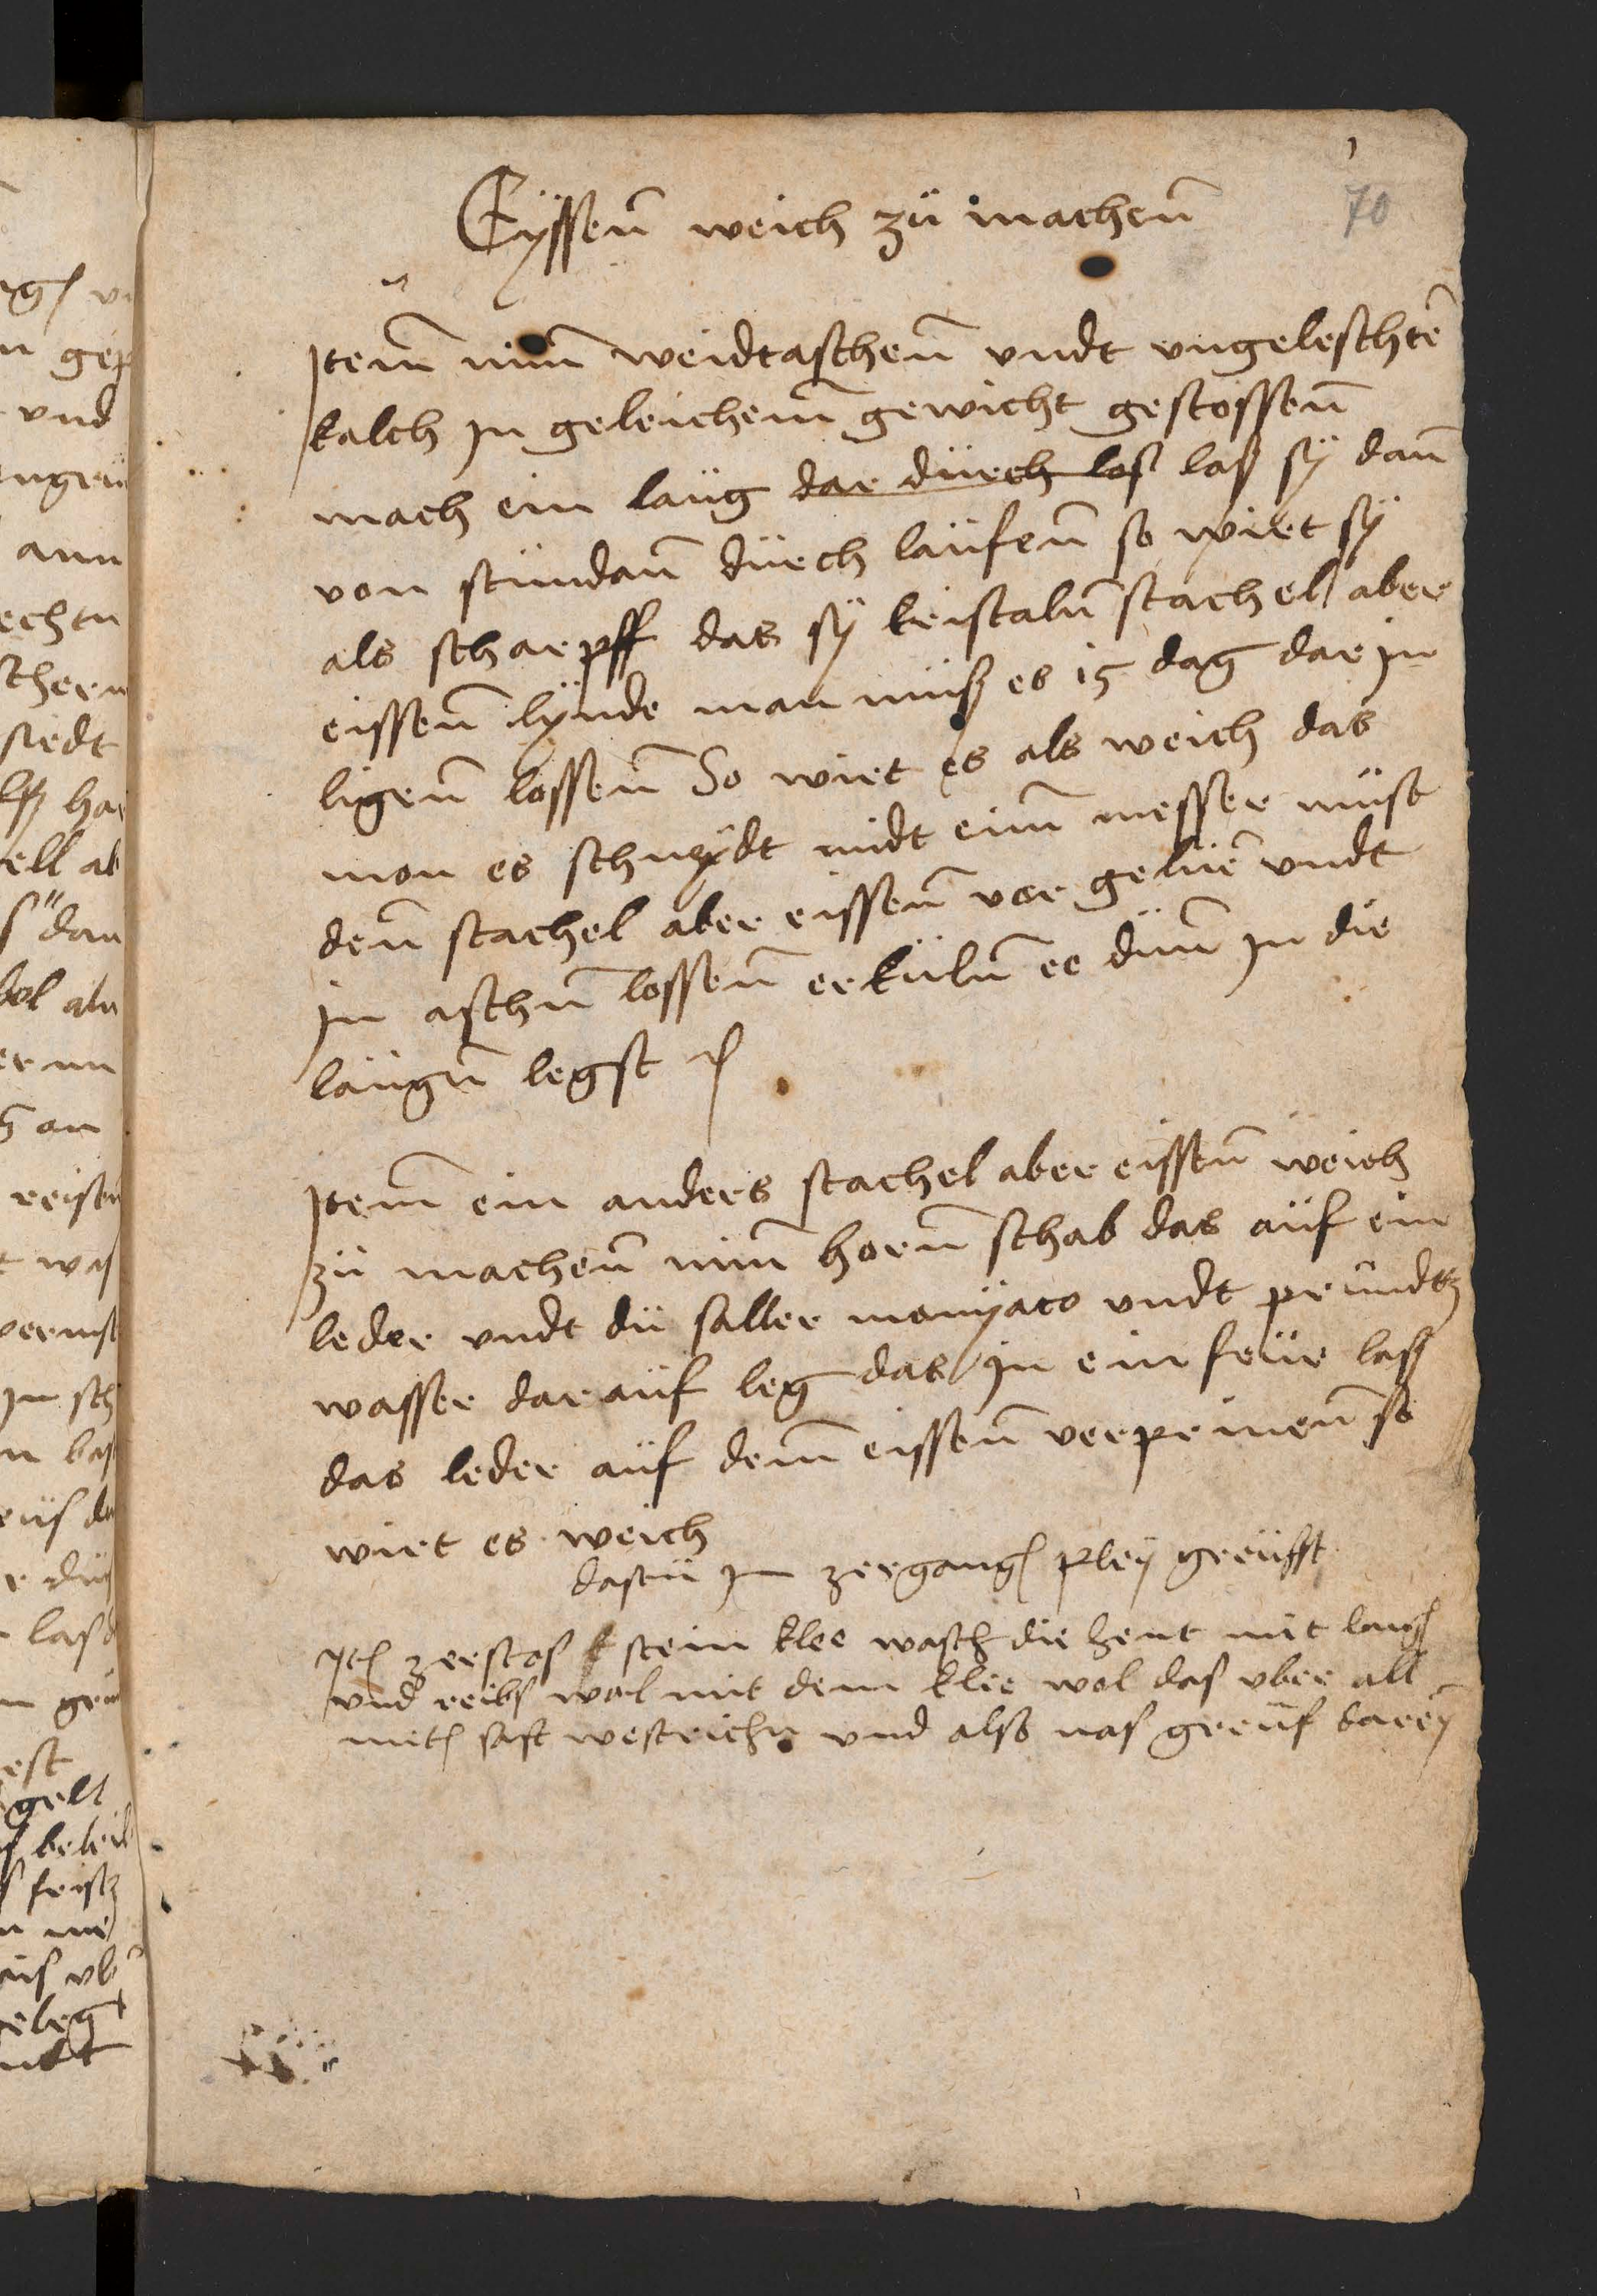 70
Eÿssen̄ weich zü machen̄
Jtem̄ nim̄ weidtaschen̄ vndt vngeleschtē
kalch jn geleichem̄ gewicht gestossen̄
mach ein laüg dar dürch los laß sÿ dan̄
von stündan̄ dürch laüfen̄ so wirt sÿ
als scharpff das sÿ kristaln̄ stachel aber
eissen̄ lÿnde man müß es 15 dag dar jn
ligen̄ lossen̄ So wirt es als weich das
mon es schneÿdt midt eim̄ messer müst
den̄ stachel aber eissen̄ vor geliē vndt
jn aschn̄ lossen̄ erküln̄ ee dün̄ jn die
laügn̄ legst
Jtem̄ ein anders stachel aber eissen̄ weich
zü machen̄ nim̄ horn̄ schab das aüf ein
leder vndt dü saller monÿaco vndt pründtz
wasser dar aüf leg das jn ein feür laß
das leder aüf dem̄ eissen̄ verprinen̄ so
wirt es weich
dastü jn zergang pleÿ greüffst
Jt zerstos stein klee wasch die hent mit laug
vnd reibs wol mit dem klee wol das vber all
mit saft westrichn vnd also nas greüf